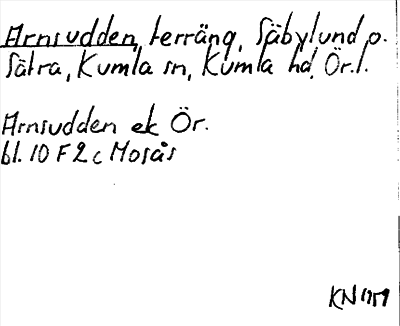 Arnsudden, terräng, Säbylund o.
Sätra, Kumla sn, Kumla hd, Ör.l.
Arnsudden ek Ör.
bl. 10 F 2 c Mosås
KN 1959